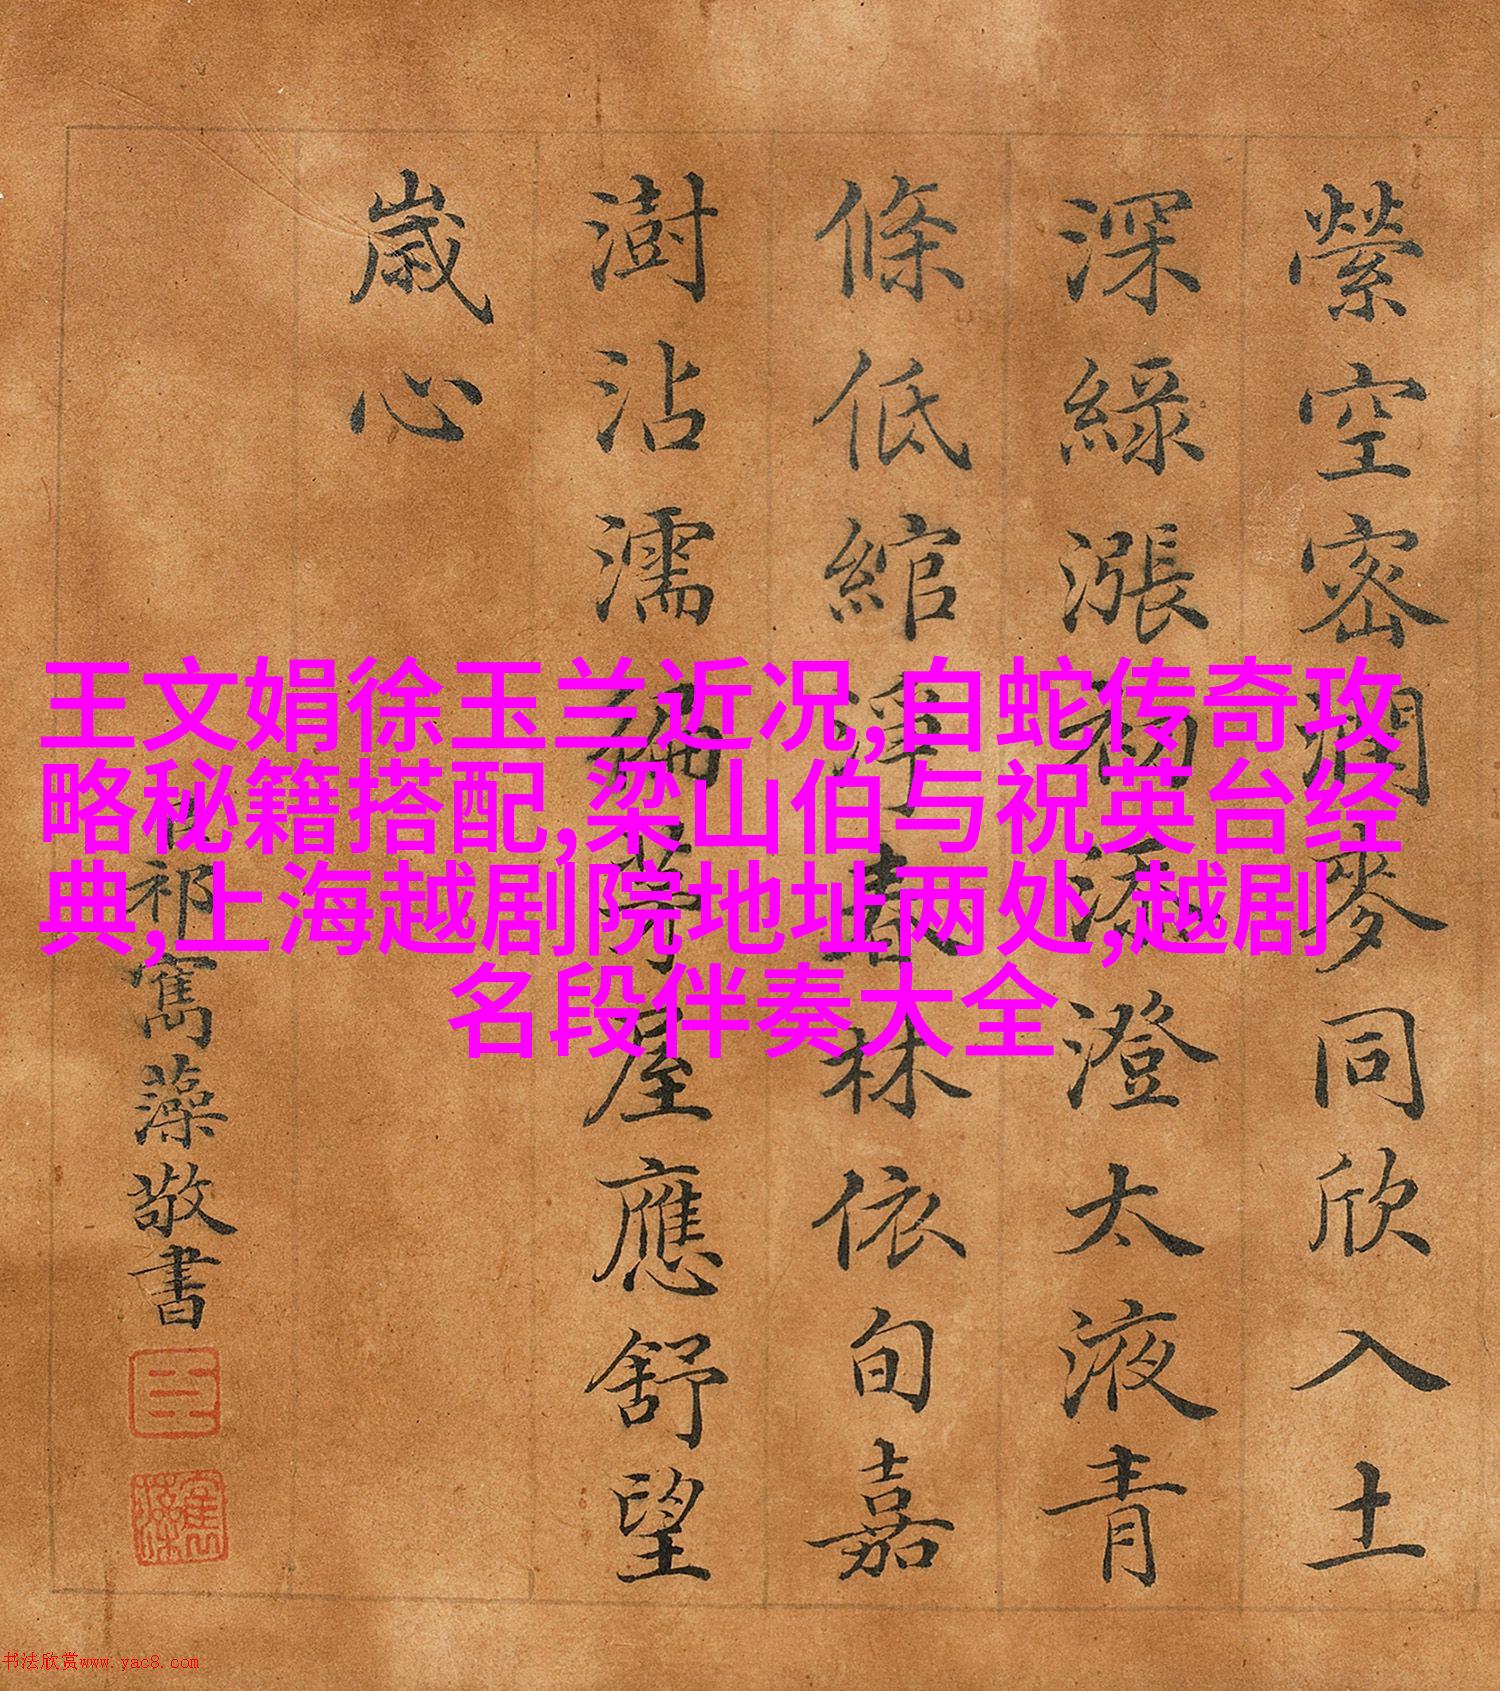 縈空密潤麥同欣入土
深綠漲初添澄太液青
條低綰浮春林依旬嘉
澍沾濡編蔀屋應舒望
歲心
臣祁寯藻敬書
王文娟徐玉兰近况,白蛇传奇攻
略秘籍搭配,梁山伯与祝英台经
典,上海越剧院地址两处,越剧
名段伴奏大全
书法欣赏www.yac8.com